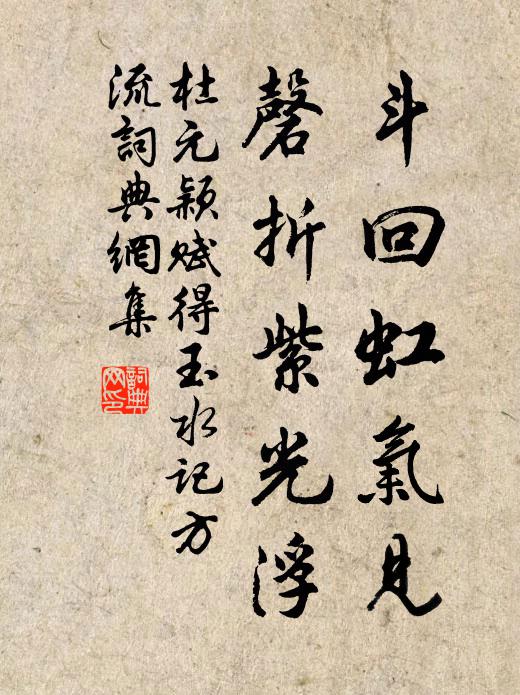 斗回虹氣見
磬折紫光浮
杜元穎賦得玉水記方
流詞典網集
詞典
网印